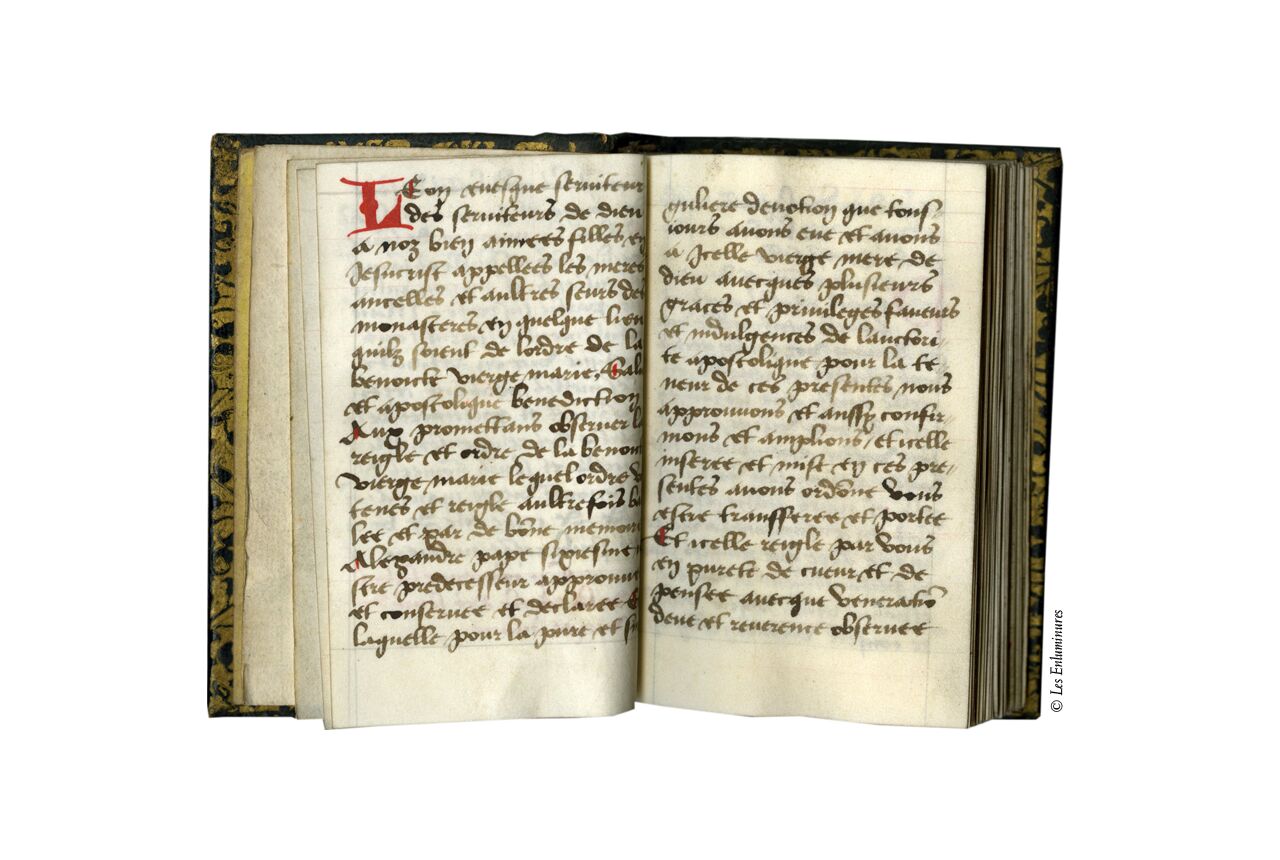 LEon euesque seruiteur
des seruiteurs de dieu
a noz bien aimees filles en
Jesucrist appellees les meres
ancelles et aultres seurs des
monasteres en quelque lieu
quilz soient de lordre de la
benoicte vierge marie, Salu
et apostolique benediction
Aux promettans obseruer l
reigle et ordre de la benoi
vierge marie lequel ordre v
tenes et reigle aultrefois ba
lee et par de bone memoire
Alexandre pape sixiesme n
stre predecesseur approuue
et conseruee et declaree E
laquelle pour la pure et si
guliere deuotion que tous-
iours auons eue et auons
a Icelle vierge mere de
dieu auecques plusieurs
graces et priuileges faueurs
et indulgences de lauctori-
te apostolique pour la te-
neur de ces presentes nous
approuuons et aussy confir-
mons et amplions, et icelle
inseree et mise en ces pre-
sentes auons ordone vous
estre transferee et portee
Et icelle reigle par vous
en purete de cueur et de
pensee auecque veneratio
deue et reuerence obseruee
© Les Enluminures